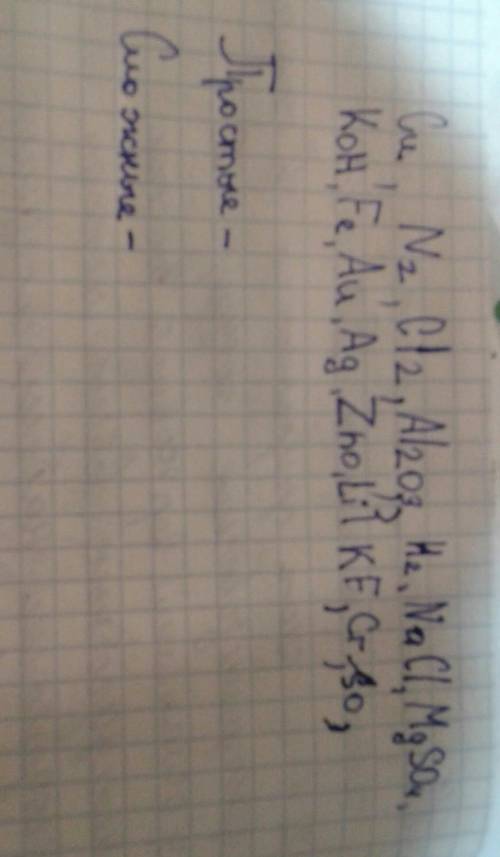 Cu, N2, Cl2, Al2O3, H2, NaCl, MgSO4,
KOH, Fe, Au, Ag, ZnO, KF, Cr,
Простые -
Сложные -